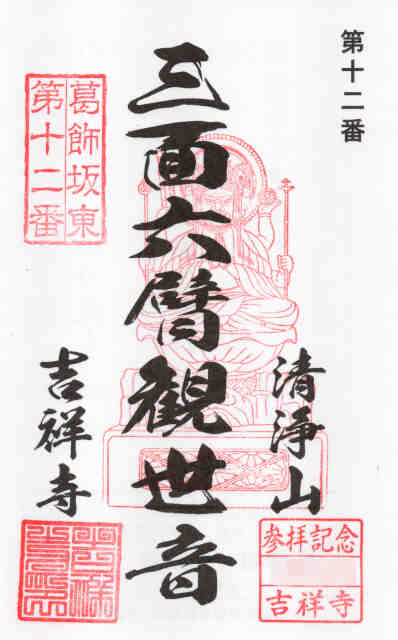 第十二番
清浄山
三面六臂觀世音
吉祥寺
葛飾坂東
第十二番
参拝記念
吉祥寺